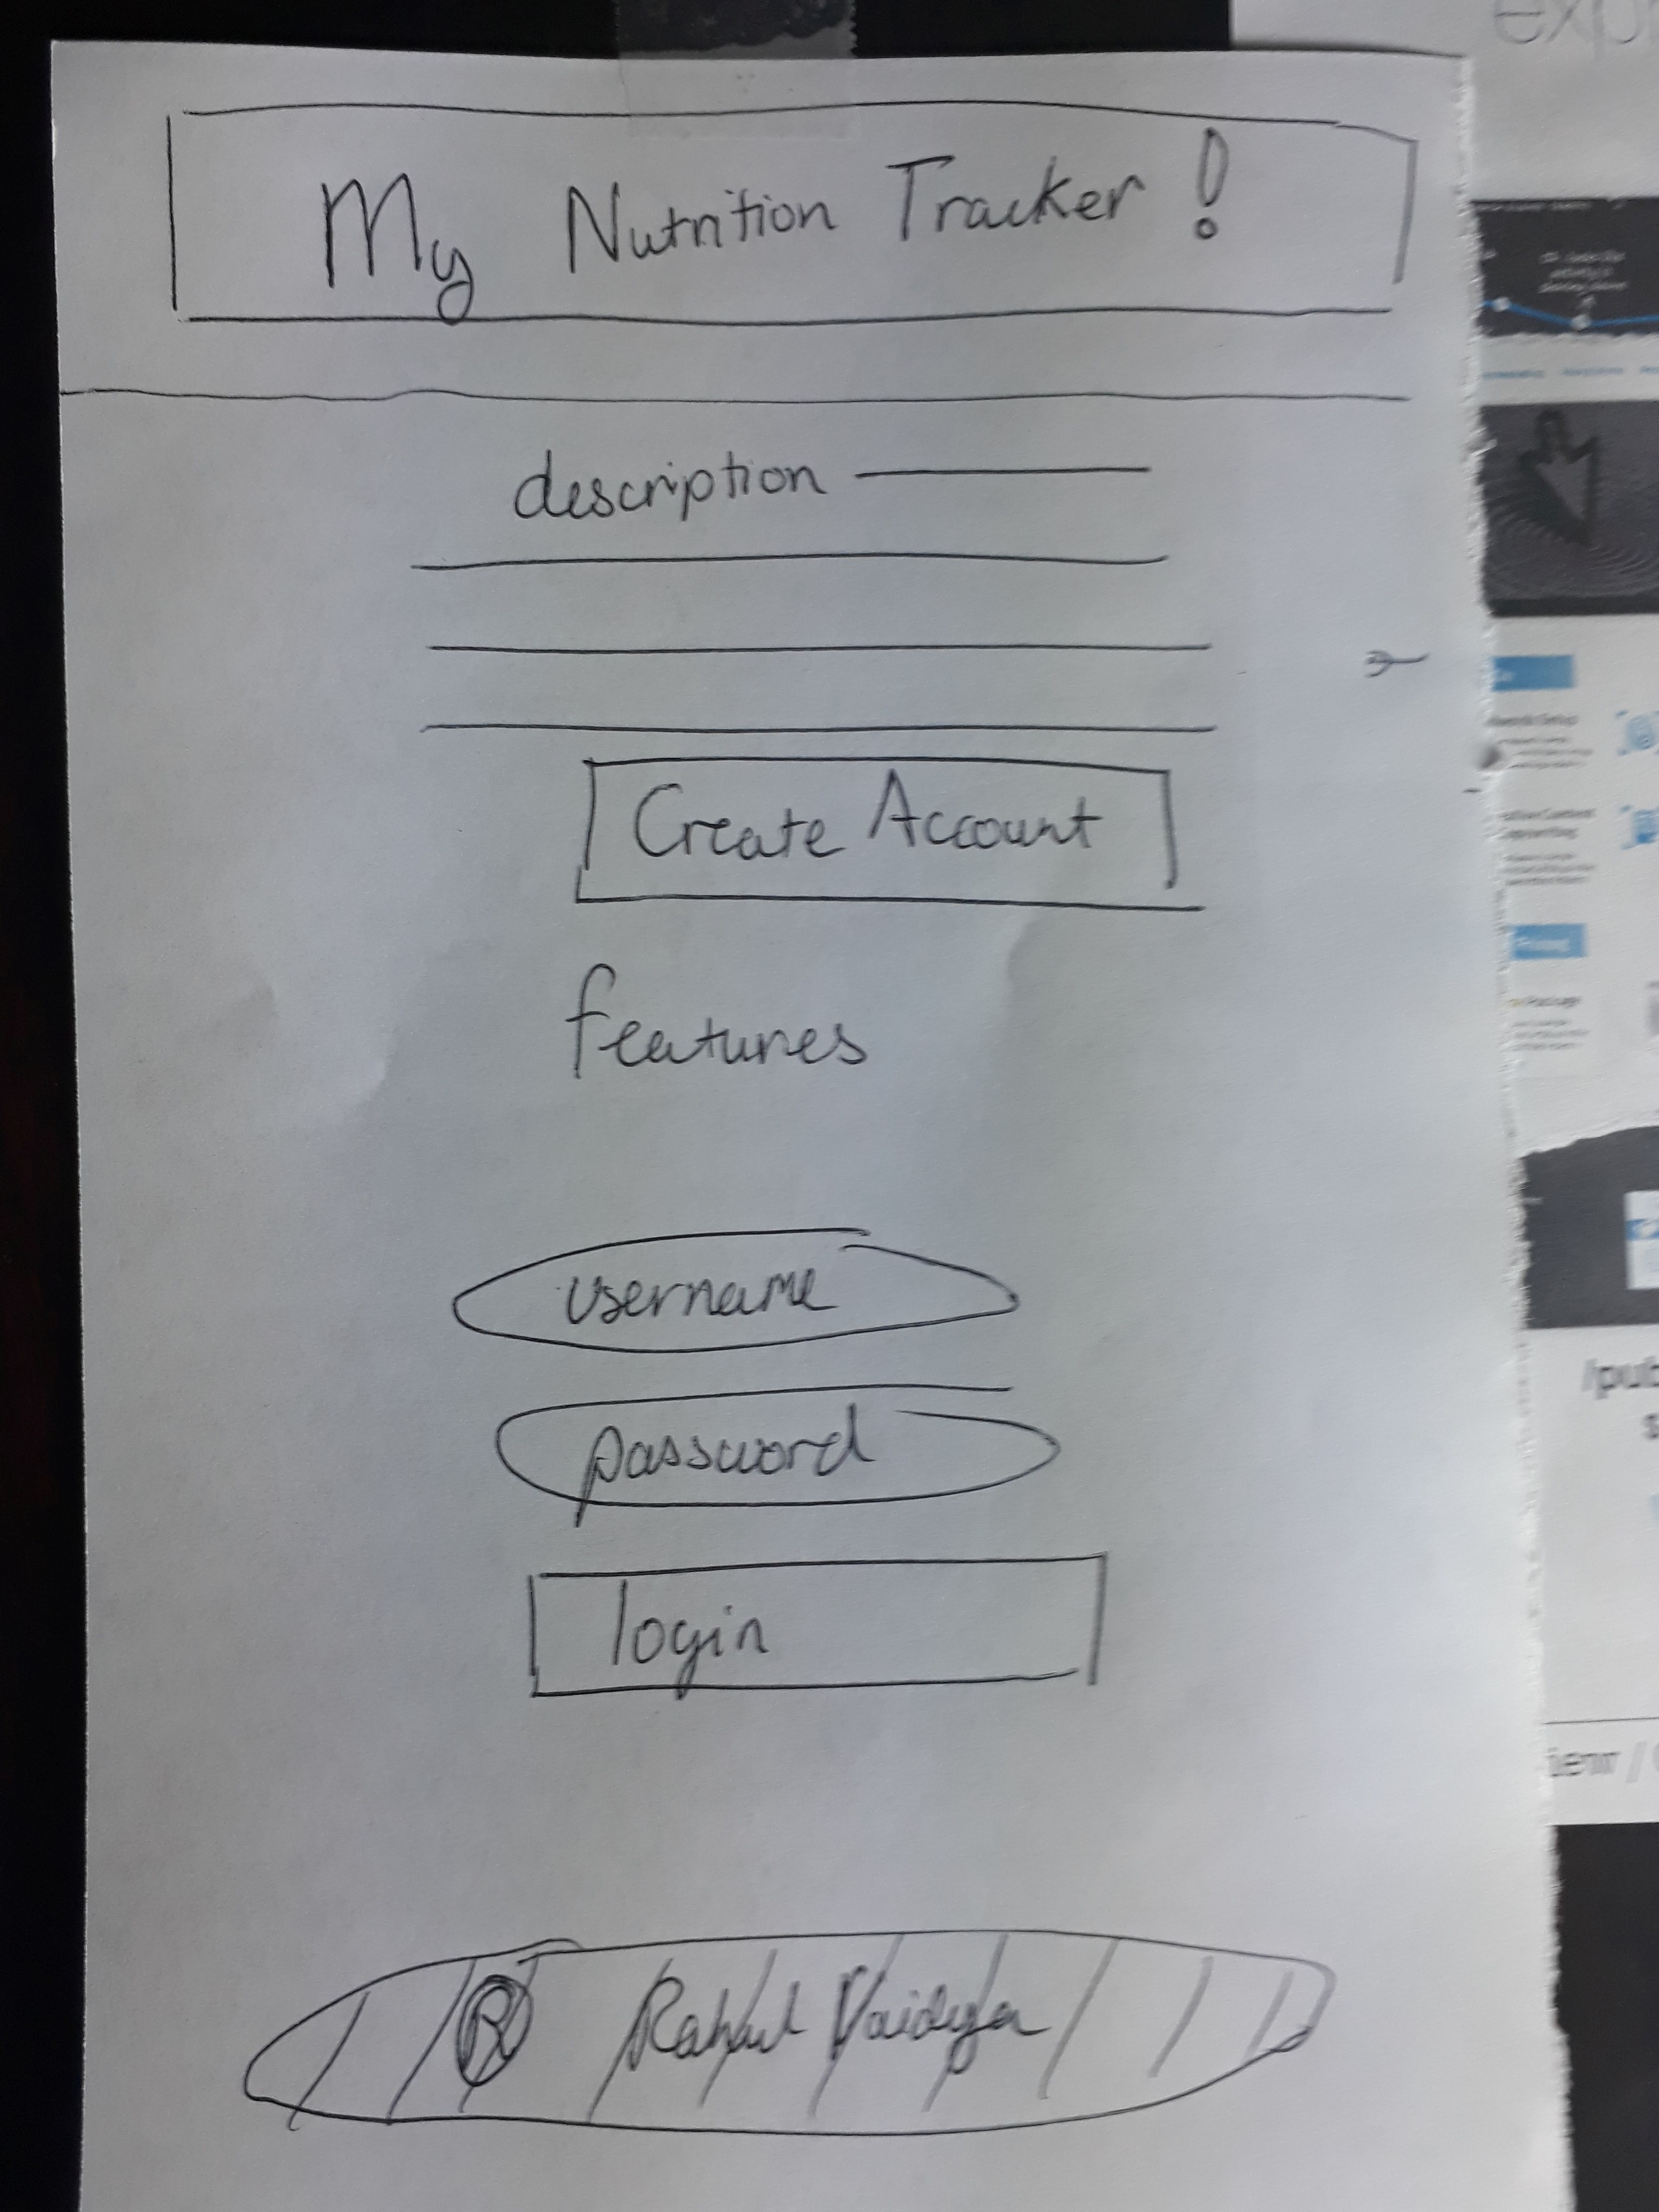 exp
My Nutrition Tracker !
description
Create Account
features
username
password
login
® Rahul Vaidya
/pub